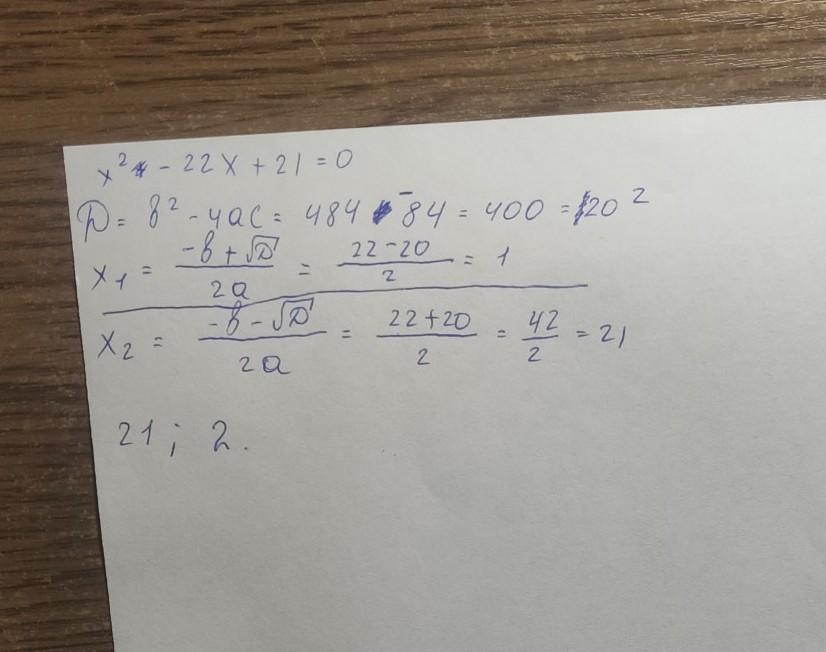 x² - 22x + 21 = 0
D = b² - 4ac = 484 - 84 = 400 = 20²
x₁ = (-b + √D)/(2a) = (22 - 20)/2 = 1
x₂ = (-b - √D)/(2a) = (22 + 20)/2 = 42/2 = 21
21; 2.